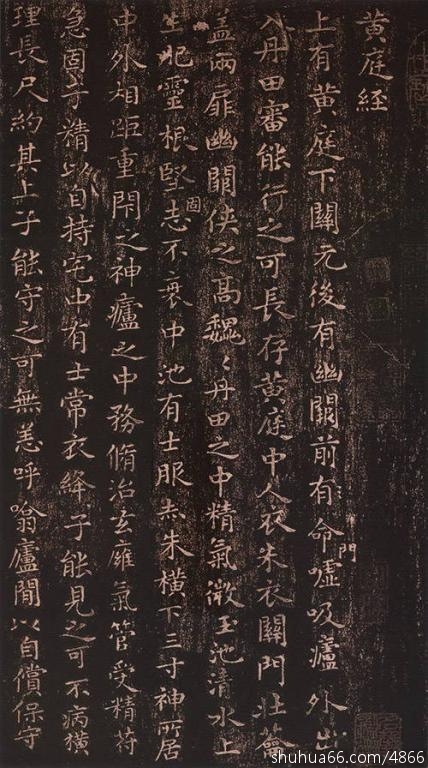 黄庭經
上有黄庭下關元後有幽闕前有命門噓吸廬外出
入丹田審能行之可長存黄庭中人衣朱衣關門壯籥
蓋兩扉幽闕俠之高魏〻丹田之中精氣微玉池清水上
生肥靈根堅固志不衰中池有士服赤朱橫下三寸神所居
中外相距重閇之神廬之中務脩治玄廱氣管受精苻
急固子精以自持宅中有士常衣絳子能見之可不病橫
理長尺約其上子能守之可無恙呼噏廬間以自償保守
shuhua66.com/4866